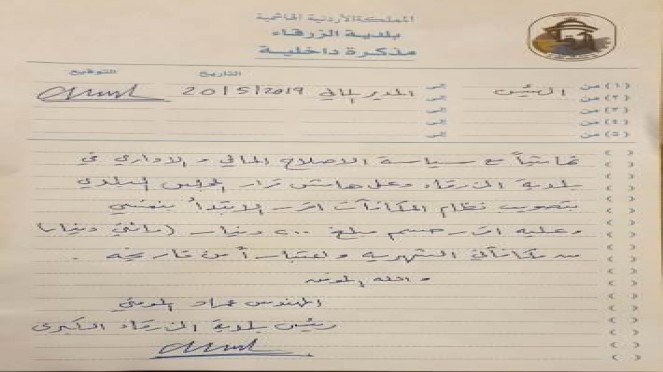 المملكة الأردنية الهاشمية
بلدية الزرقاء
مذكرة داخلية
التاريخ التوقيع
(١) من الرئيس إلى المدير المالي 20/5/2019
(٢) من إلى
(٣) من إلى
(٤) من إلى
(٥) من إلى
تماشياً مع سياسة الاصلاح المالي و الاداري في
بلدية الزرقاء وعلى هامش قرار المجلس البلدي
بتصويب نظام المكافآت اقرر الابتدأ بنفسي
وعليه اقرر حسم مبلغ ٢٠٠ دينار (مائتي دينار)
من مكافأتي الشهرية واعتباراً من تاريخه .
و الله الموفق
المهندس عماد المومني
رئيس بلدية الزرقاء الكبرى